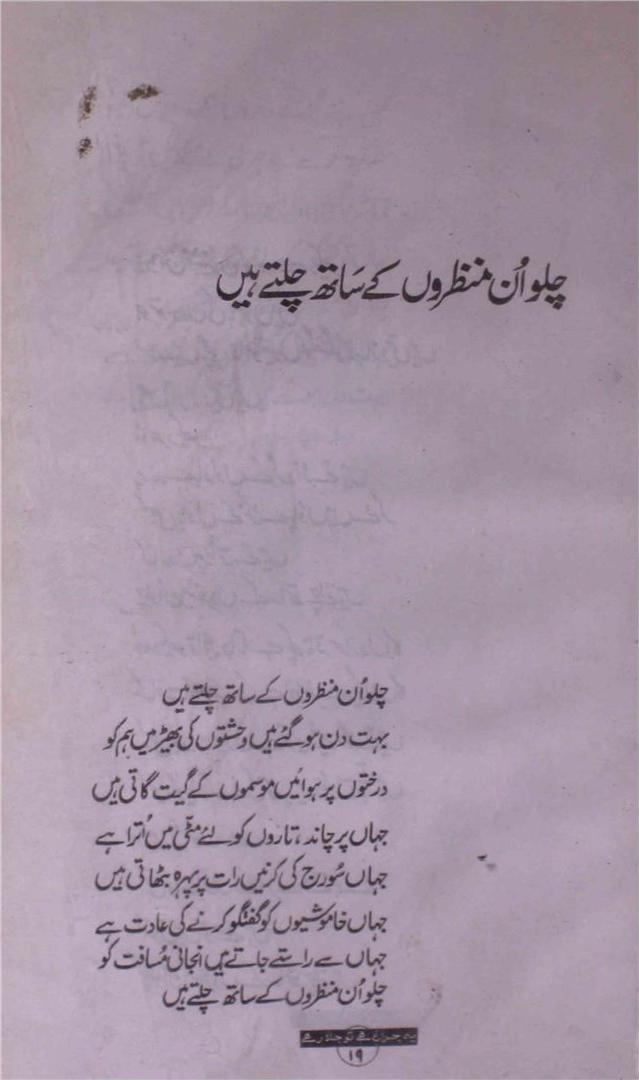 چلو اُن منظروں کے سَاتھ چلتے ہیں
چلو اُن منظروں کے ساتھ چلتے ہیں
بہت دن ہو گئے ہیں وحشتوں کی بھیڑ میں ہم کو
درختوں پر ہوائیں موسموں کے گیت گاتی ہیں
جہاں پر چاند، تاروں کو لئے مٹّی میں اُترا ہے
جہاں سُورج کی کرنیں رات پر پہرہ بٹھاتی ہیں
جہاں خاموشیوں کو گفتگو کرنے کی عادت ہے
جہاں سے راستے جاتے ہیں انجانی مُسافت کو
چلو اُن منظروں کے ساتھ چلتے ہیں
یہ چراغ ہے تو جلا رہے
۱۹